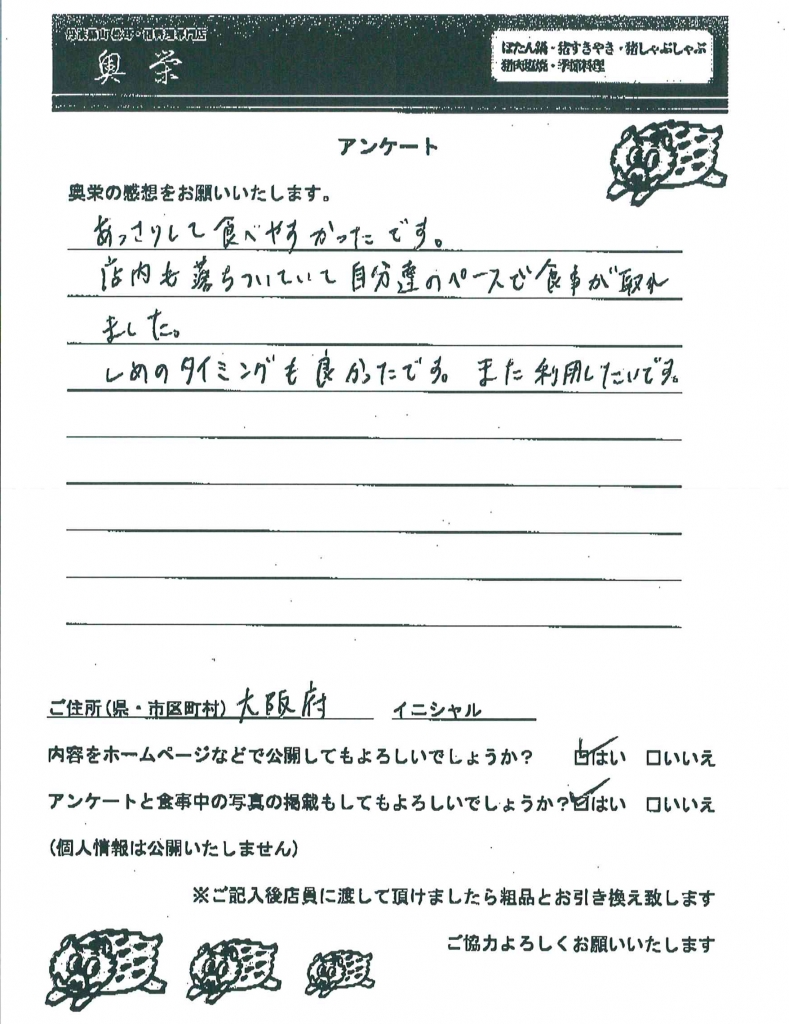 丹波篠山 熊野・猪料理専門店
奥栄
ぼたん鍋・猪すきやき・猪しゃぶしゃぶ
猪肉塩焼・季節料理
アンケート
奥栄の感想をお願いいたします。
あっさりして食べやすかったです。
店内も落ちついていて自分達のペースで食事が取れ
ました。
しめのタイミングも良かったです。また利用したいです。
ご住所(県・市区町村) 大阪府 イニシャル
内容をホームページなどで公開してもよろしいでしょうか? ☑はい □いいえ
アンケートと食事中の写真の掲載もしてもよろしいでしょうか?☑はい □いいえ
(個人情報は公開いたしません)
※ご記入後店員に渡して頂けましたら粗品とお引き換え致します
ご協力よろしくお願いいたします